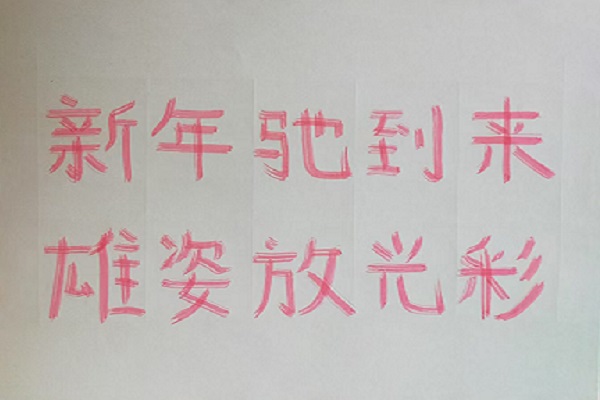 新年驰到来
雄姿放光彩